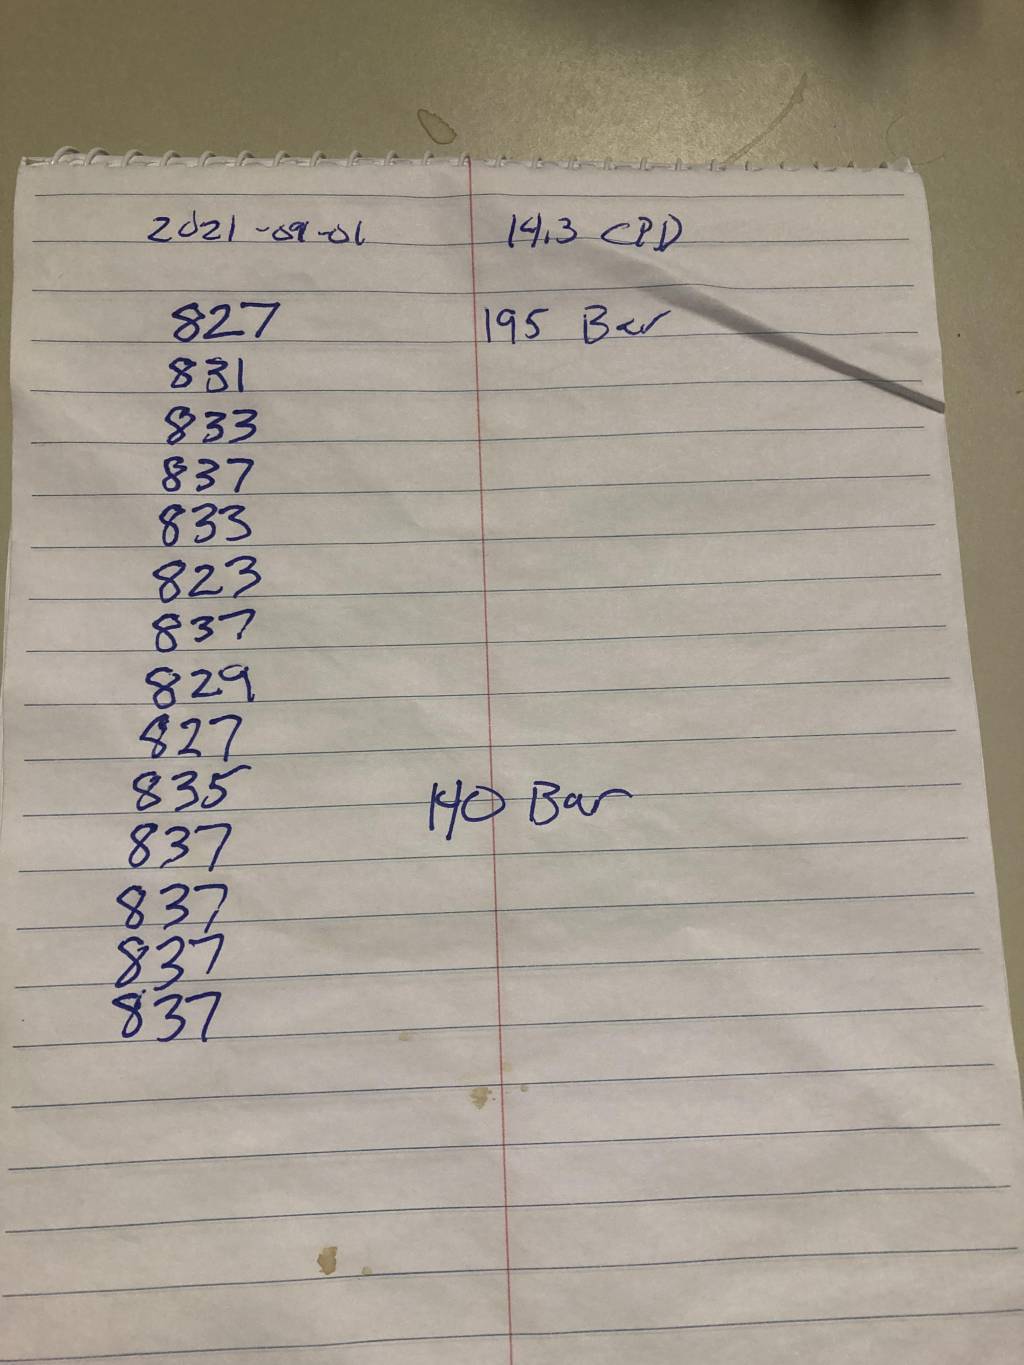 2021-09-01 14.3 CPD
827 195 Bar
831
833
837
833
823
837
829
827
835 140 Bar
837
837
837
837